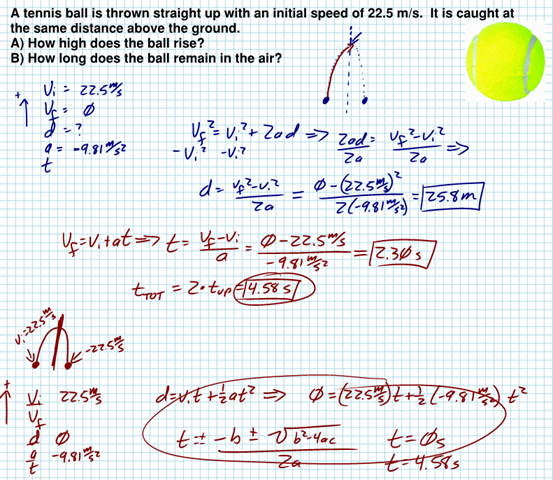 A tennis ball is thrown straight up with an initial speed of 22.5 m/s. It is caught at
the same distance above the ground.
A) How high does the ball rise?
B) How long does the ball remain in the air?
+
Vi = 22.5 m/s
Vf = Ø
d = ?
a = -9.81 m/s²
t
Vf² = Vi² + 2ad => 2ad/2a = Vf² - Vi²/2a =>
-Vi² -Vi²
d = Vf² - Vi²/2a = Ø - (22.5 m/s)²/2(-9.81 m/s²) = 25.8 m
Vf = Vi + at => t = Vf - Vi/a = Ø - 22.5 m/s/-9.81 m/s² = 2.30 s
tTOT = 2 · tUP = 4.58 s
Vi = 22.5 m/s
-22.5 m/s
+
Vi 22.5 m/s
Vf
d Ø
a -9.81 m/s²
t
d = Vit + ½at² => Ø = (22.5 m/s)t + ½(-9.81 m/s²)t²
t = -b ± √b²-4ac/2a
t = Øs
t = 4.58s